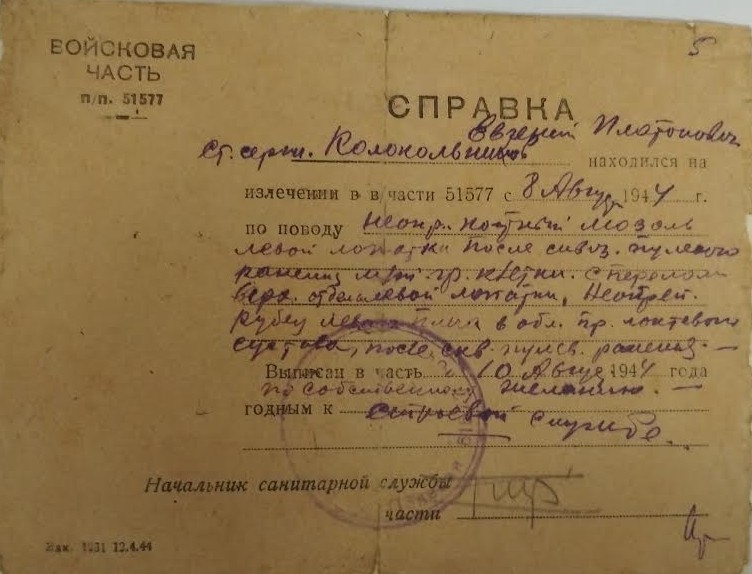 5
ВОЙСКОВАЯ
ЧАСТЬ
П/П. 51577
СПРАВКА
Евгений Платонович
Ст. серж. Колокольников находился на
излечении в в части 51577 с 8 Август 1944 г.
по поводу костный мозоль
левой лопатки после сквоз. пулевого
ранения гр. клетки. с перелом
левой лопатки,
Рубец левого плеча в обл. пр. локтевого
сустава, после скв. пулев. ранения
Выписан в часть 10 Август 1944 года
по собственному желанию.
годным к строевой службе.
Начальник санитарной службы
части
Зак. 1931 12.4.44